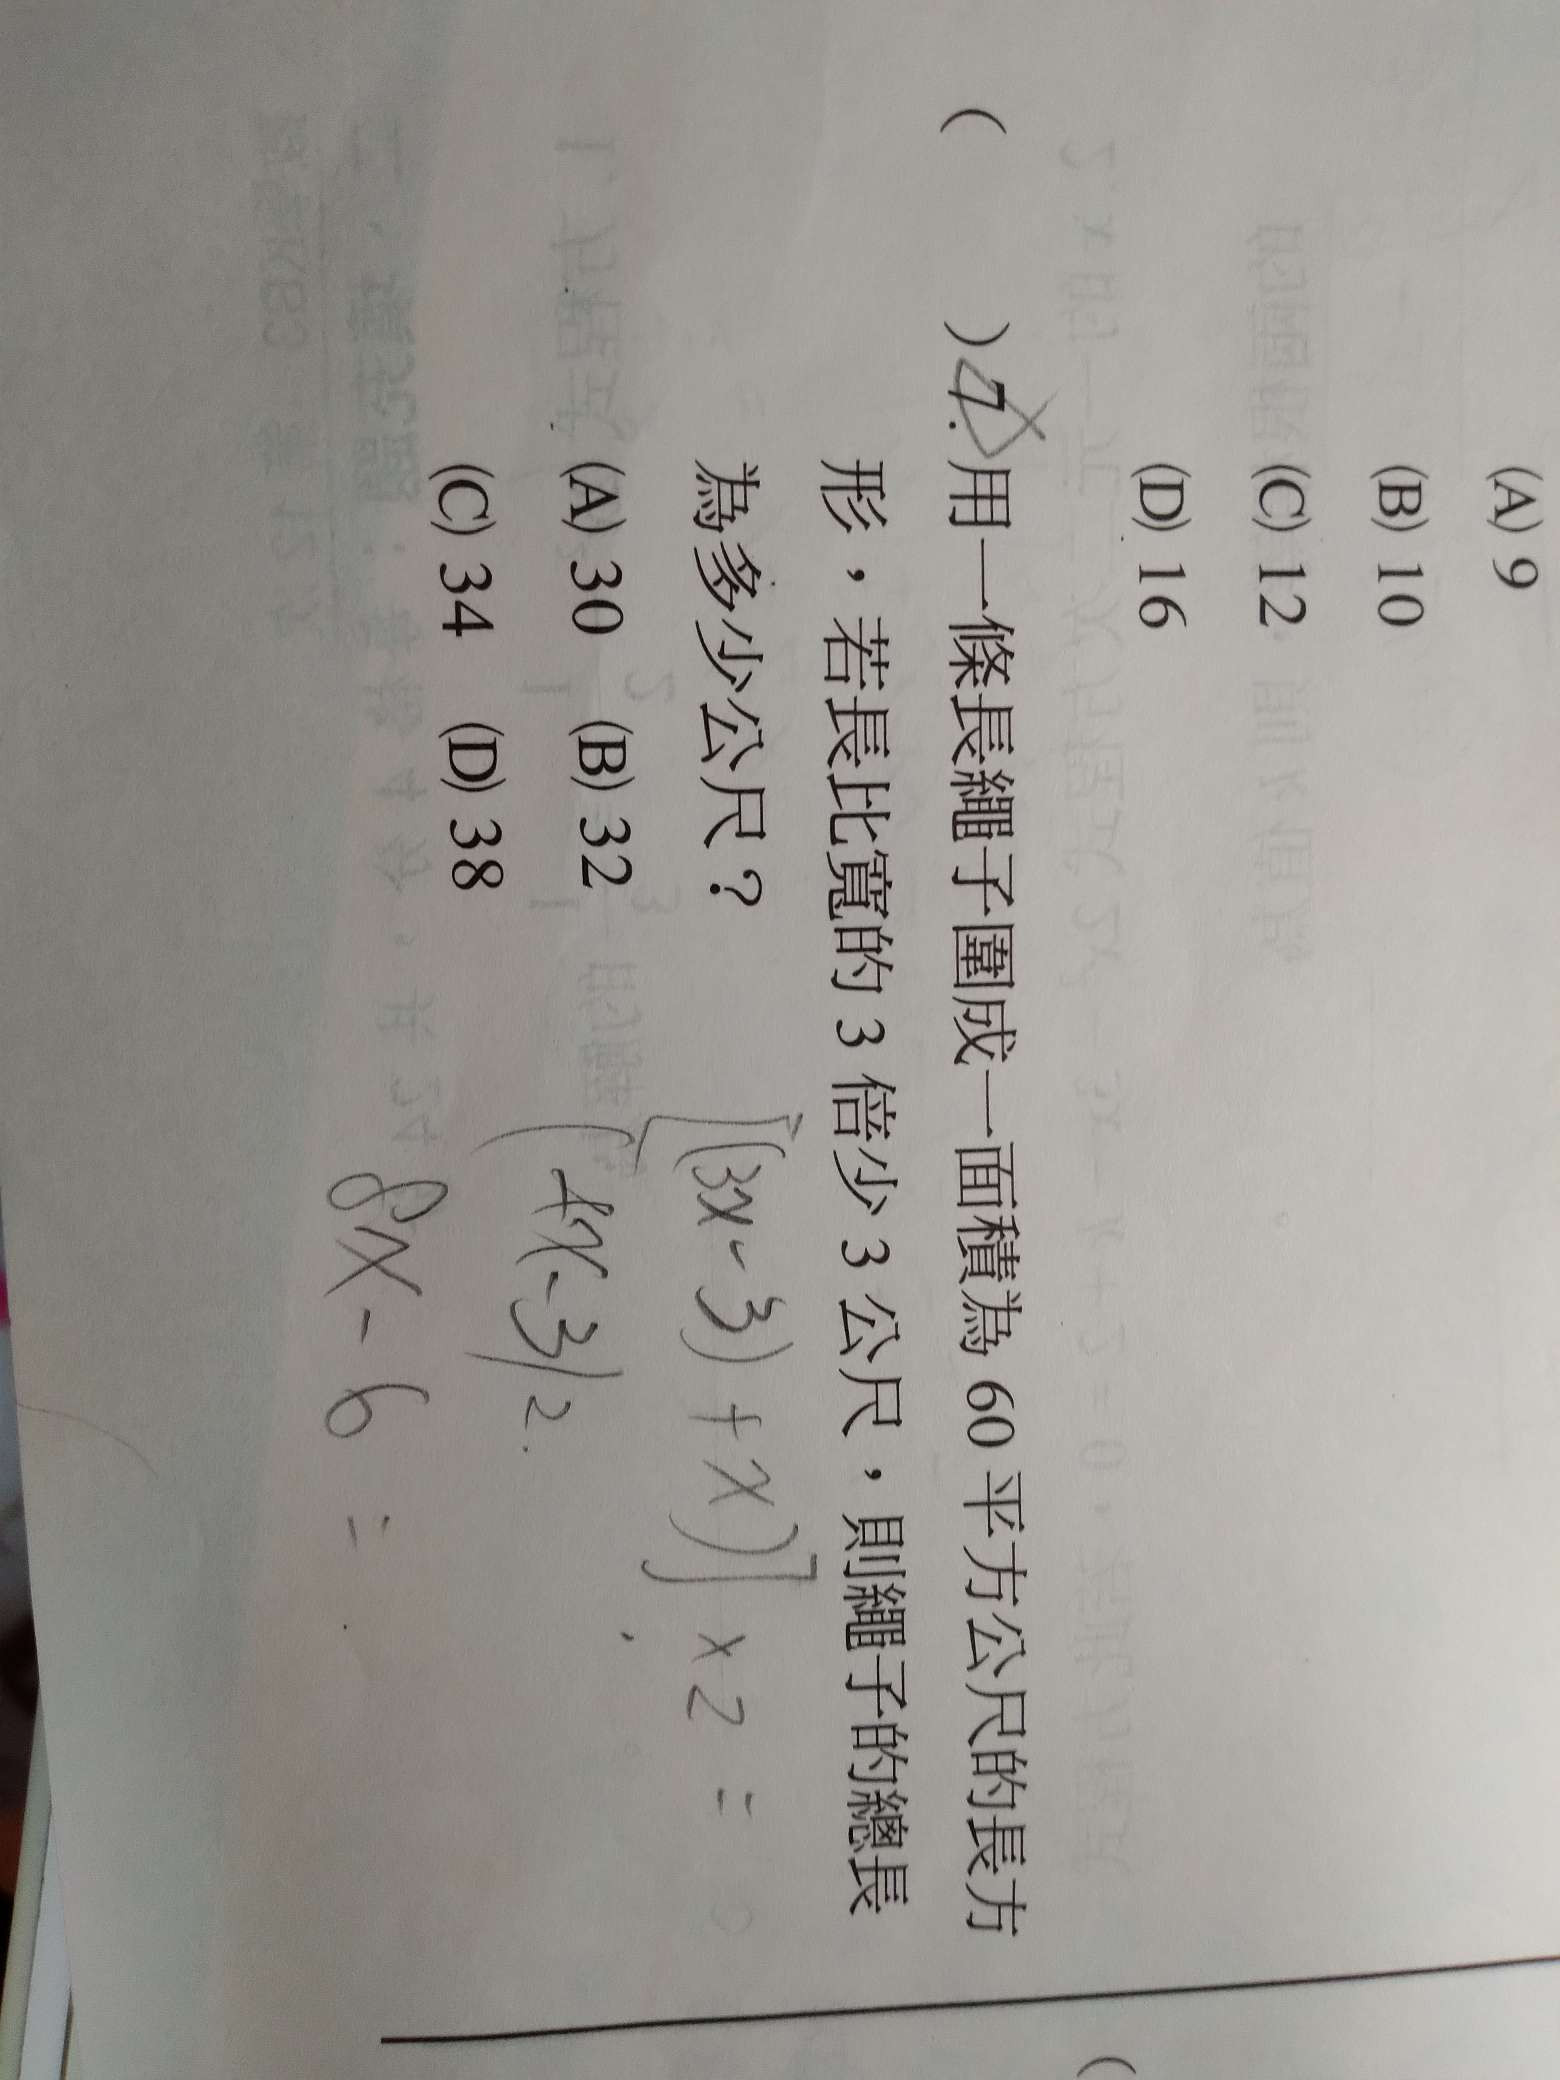 (A) 9
(B) 10
(C) 12
(D) 16
( )7.用一條長繩子圍成一面積為 60 平方公尺的長方
形，若長比寬的 3 倍少 3 公尺，則繩子的總長
為多少公尺？
(A) 30 (B) 32
(C) 34 (D) 38
[(3x-3)+x)]×2=
(4x-3)2
8x-6=
(